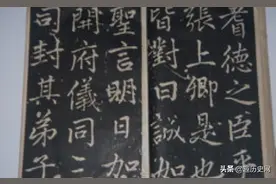 耆德之臣
張上卿是也
皆對曰誠如
聖言明日加
開府儀同三
司封其弟子
头条